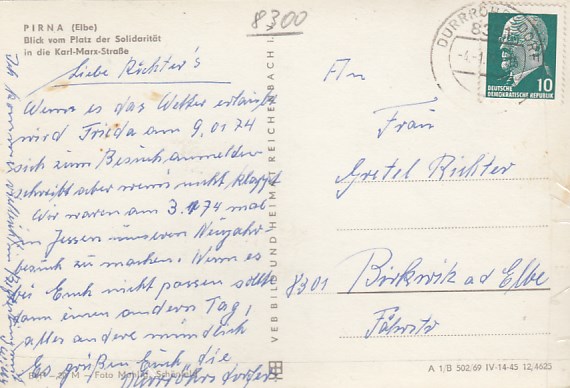 8300
PIRNA (Elbe)
Blick vom Platz der Solidarität
in die Karl-Marx-Straße
Liebe Richter's
Wenns es das Wetter erlaubt
wird Frieda am 9.01 74
sich zum Besuch anmelden
schreibt aber wenns nicht klappt
Wir waren am 3.1 74 mal
in Jessen unseren Neujahr
besuch zu machen. Wenn es
bei Euch nicht passen sollte
dann einen andern Tag,
alles andere mündlich
Es grüßen Euch die
Dürrröhrsdorfer
Foto
VEB BILD UND HEIMAT REICHENBACH I. V.
DÜRRRÖHRSDORF
-4.-1.
DEUTSCHE
DEMOKRATISCHE REPUBLIK
10
An
Frau
Gretel Richter
8301 Birkwitz a d Elbe
A 1/B 502/69 IV-14-45 12/4625